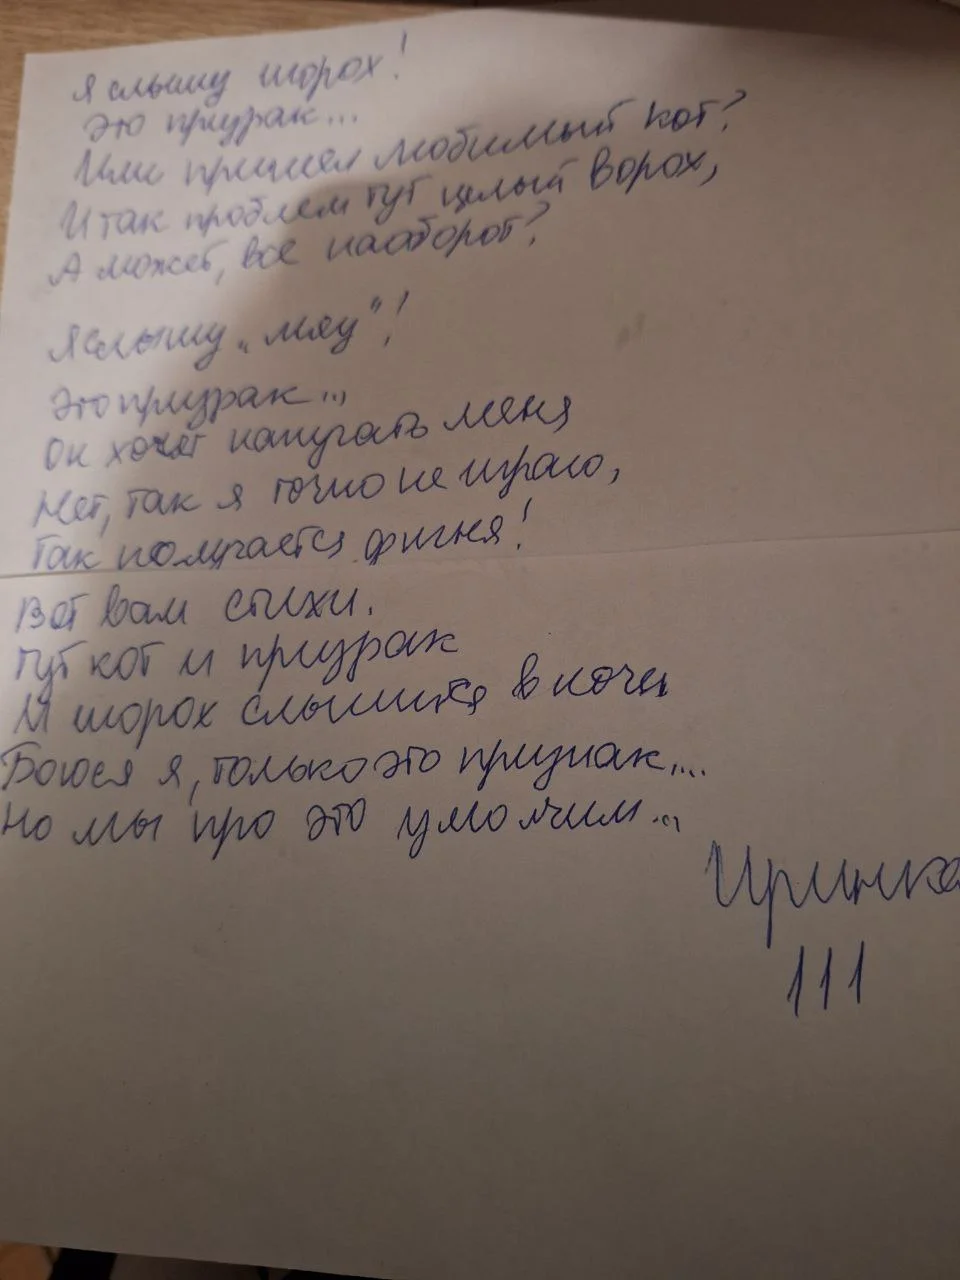 Я слышу шорох!
Это призрак...
Или пришел любимый кот?
И так проблем тут целый ворох,
А может, все наоборот?
Я слышу „мяу"!
Это призрак...
Он хочет напугать меня
Нет, так я точно не играю,
Так получается фигня!
Вот вам стихи.
Тут кот и призрак
И шорох слышится в ночи
Боюся я, только это признак....
Но мы про это умолчим...
Иринка
111